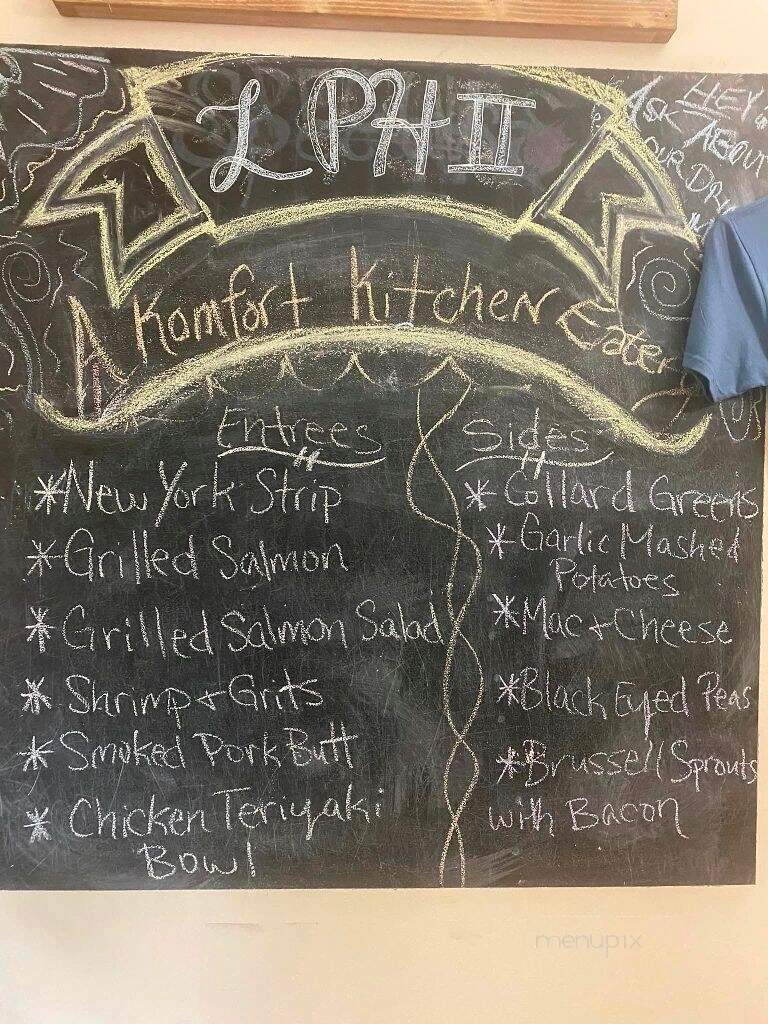 L PH II
HEY!
ASK ABOUT
OUR
A Komfort Kitchen Eatery
Entrees
* New York Strip
* Grilled Salmon
* Grilled Salmon Salad
* Shrimp + Grits
* Smoked Pork Butt
* Chicken Teriyaki
Bowl
Sides
* Collard Greens
* Garlic Mashed
Potatoes
* Mac + Cheese
* Black Eyed Peas
* Brussell Sprouts
with Bacon
menupix